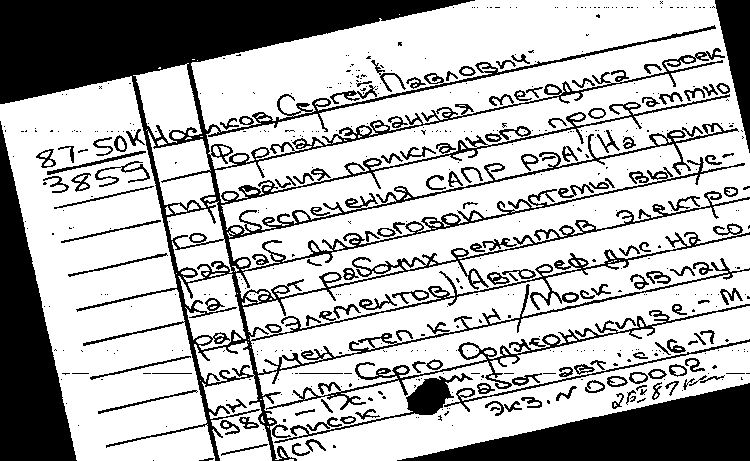 87-50К
3859
Носиков, Сергей Павлович.
Формализованная методика проек
тирования прикладного программно
го обеспечения САПР РЭА: (На прим.
разраб. диалоговой системы выпус-
ка карт рабочих режимов электро-
радиоэлементов): Автореф. дис. на со
иск. учен. степ. к.т.н. / Моск. авиац.
ин-т им. Серго Орджоникидзе. - М.
1986. - 17с.:
Список работ авт.: с. 16-17.
ДСП.
экз. N 000002.